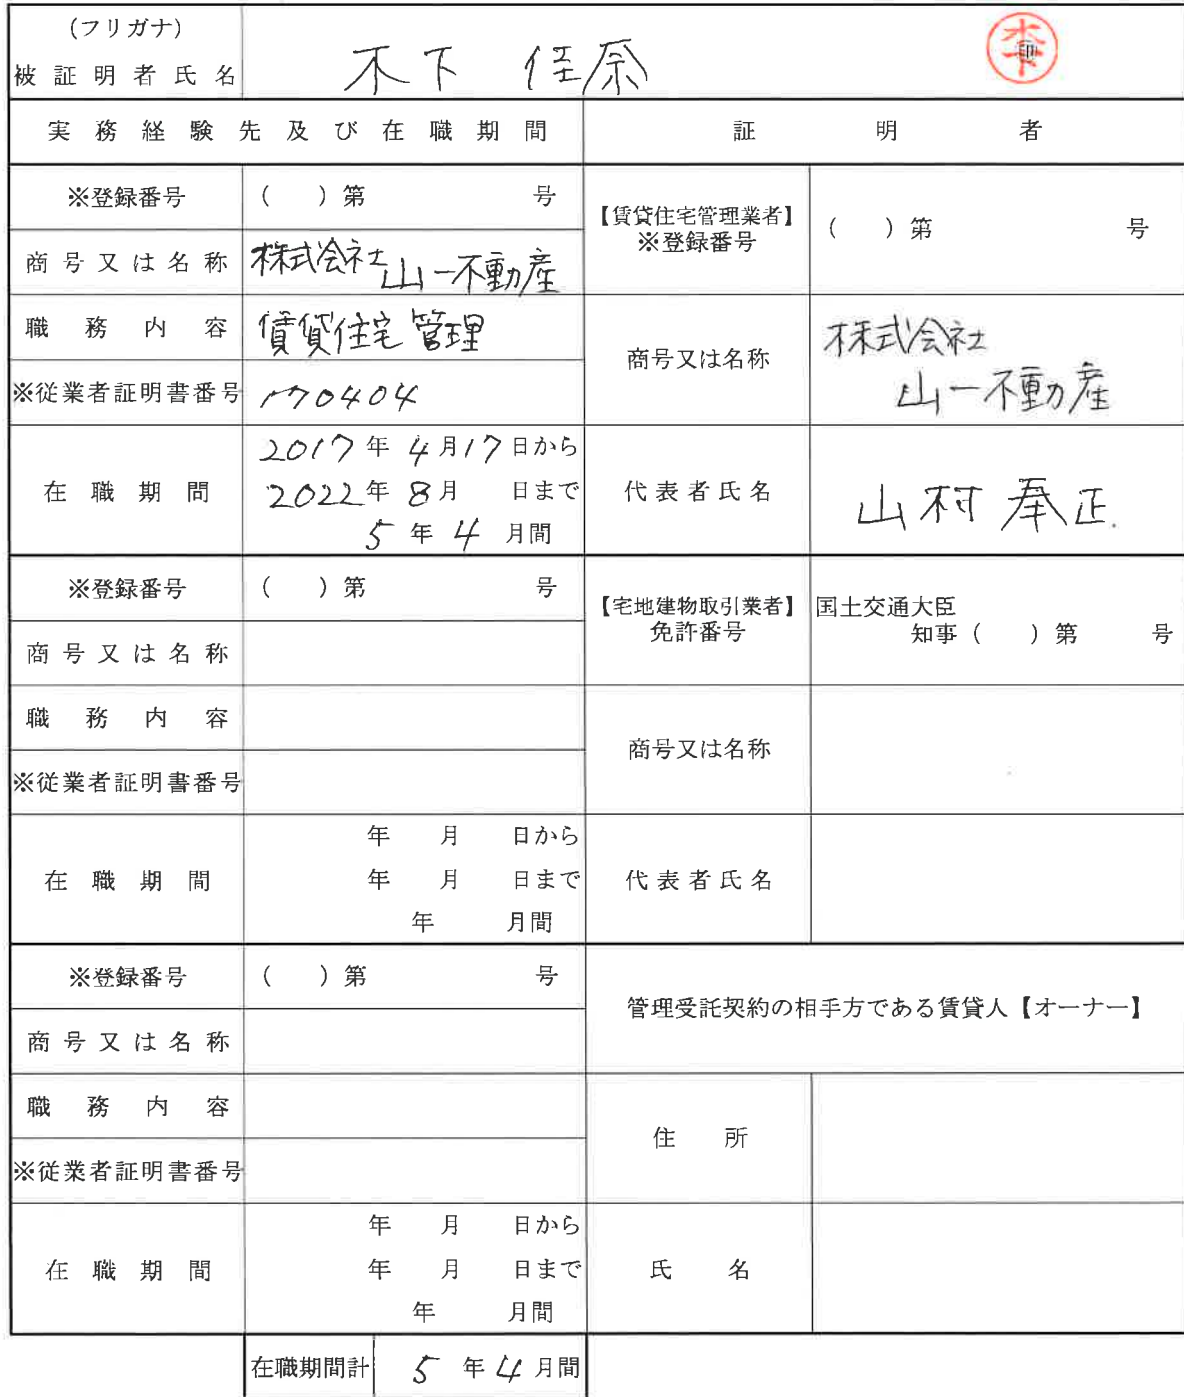 (フリガナ)
被証明者氏名 木下 佳奈 印
実務経験先及び在職期間 証明者
※登録番号 ( )第 号
【賃貸住宅管理業者】
※登録番号 ( )第 号
商号又は名称 株式会社 山一不動産
職務内容 賃貸住宅管理
商号又は名称 株式会社
山一不動産
※従業者証明書番号 170404
在職期間 2017年 4月17日から
2022年 8月 日まで
5年 4月間
代表者氏名 山村 奉正
※登録番号 ( )第 号
【宅地建物取引業者】
免許番号
国土交通大臣
知事( )第 号
商号又は名称
職務内容
商号又は名称
※従業者証明書番号
在職期間 年 月 日から
年 月 日まで
年 月間
代表者氏名
※登録番号 ( )第 号
管理受託契約の相手方である賃貸人【オーナー】
商号又は名称
職務内容
住所
※従業者証明書番号
在職期間 年 月 日から
年 月 日まで
年 月間
氏名
在職期間計 5年4月間